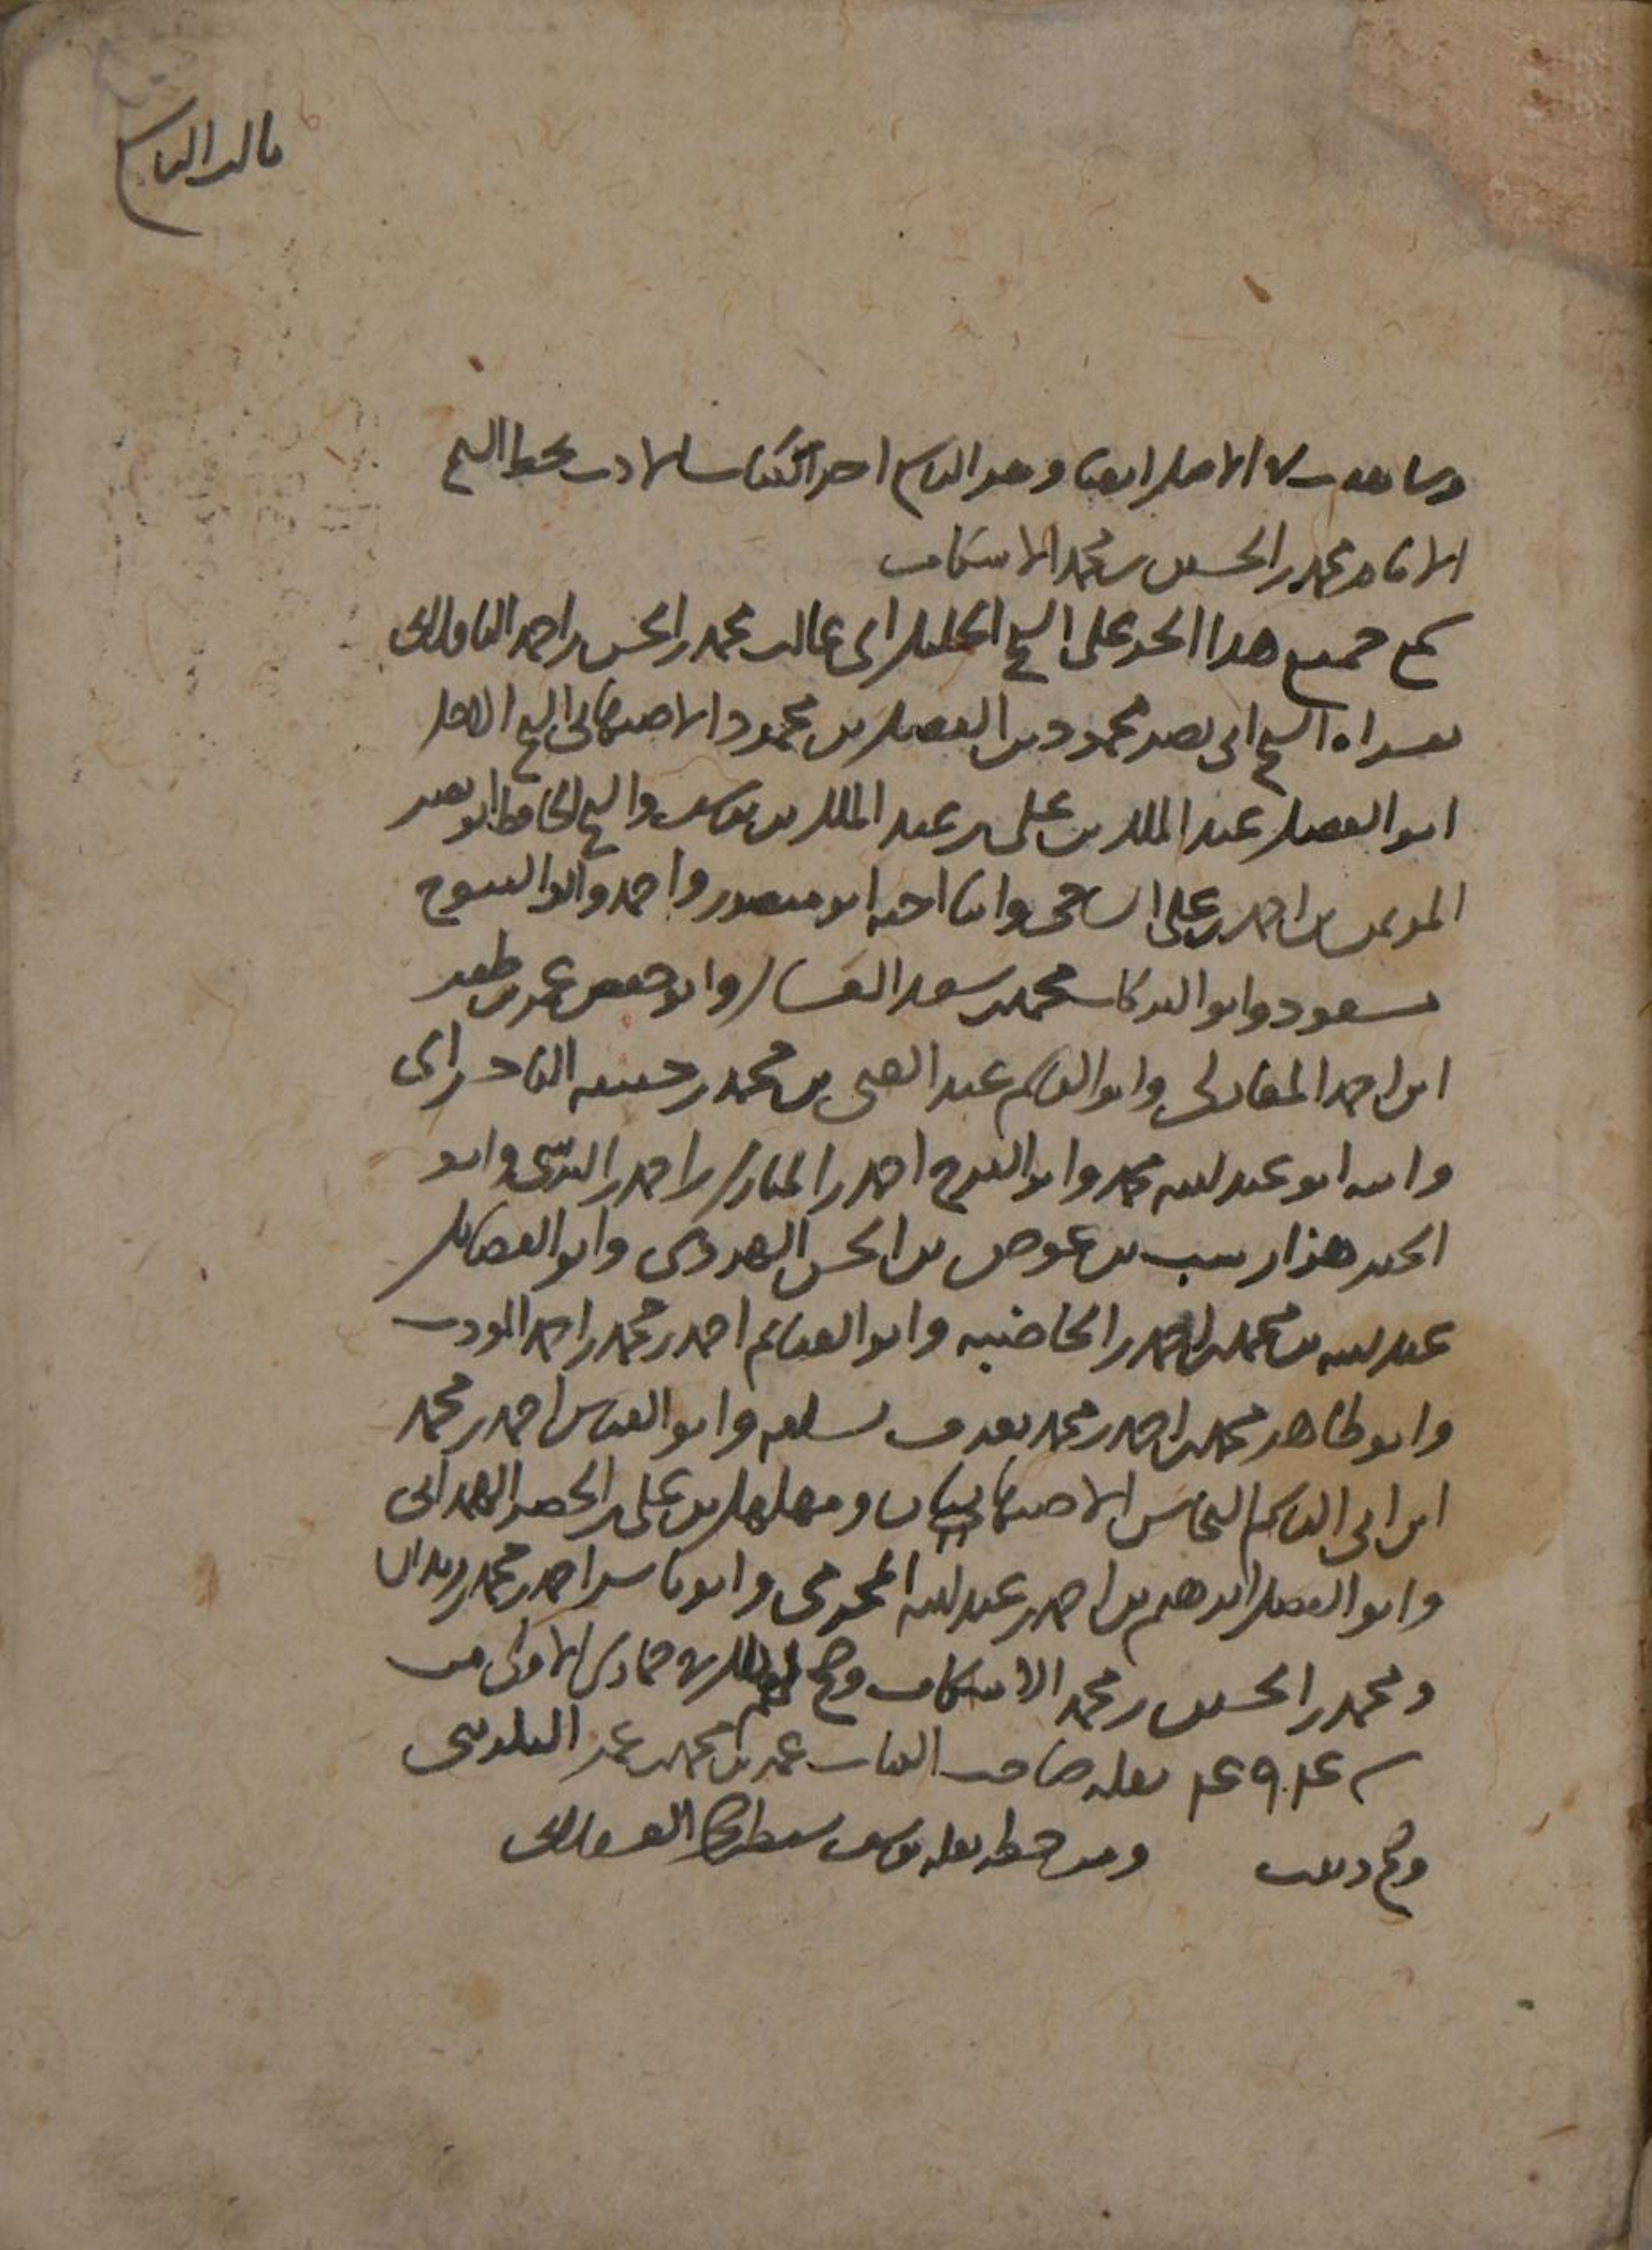 وشاهدت في الاصل ايضا وهو الثامن احد الكتاب الادب بخط الشيخ
الامام محمد بن الحسين بن محمد الاسكاف
سمع جميع هذا الجزء على الشيخ الجليل ابي غالب محمد بن الحسن بن احمد الباقلاني
بقراءة الشيخ ابي نصر محمود بن الفضل بن محمود الاصبهاني الشيخ الاجل
ابو الفضل عبد الملك بن علي بن عبد الملك بن يوسف والشيخ الحافظ ابو نصر
المؤتمن بن احمد بن علي الساجي وابنا اخيه ابو منصور واحمد وابو الفتوح
مسعود وابو البركات محمد بن سعد الغسال وابو حفص عمر بن ظفر
ابن احمد المغازلي وابو القاسم عبد الغني بن محمد بن حنيفة الباجسرائي
وابنه ابو عبد الله محمد وابو الفرج احمد بن المبارك بن احمد بن النرسي وابو
الخير هزارسب بن عوض بن الحسن الهروي وابو الفضائل
عبد الله بن محمد بن احمد بن الخاضبه وابو الغنائم احمد بن محمد بن احمد المؤدب
وابو طاهر محمد بن احمد بن محمد يعرف بسلفه وابو العباس احمد بن محمد
ابن ابي القاسم النخاس الاصبهانيان ومهلهل بن علي بن الخضر الهمداني
وابو الفضل ابرهيم بن احمد بن عبد الله المخرمي وابو ياسر احمد بن محمد بن
ومحمد بن الحسين بن محمد الاسكاف وصح لهم ذلك في جمادى الاولى من
سنة ٤٩٤ نقله صاحب الكتاب عمر بن محمد بن عمر
وصح وثبت ومن خطه نقله يوسف سبط بن حجر العسقلاني